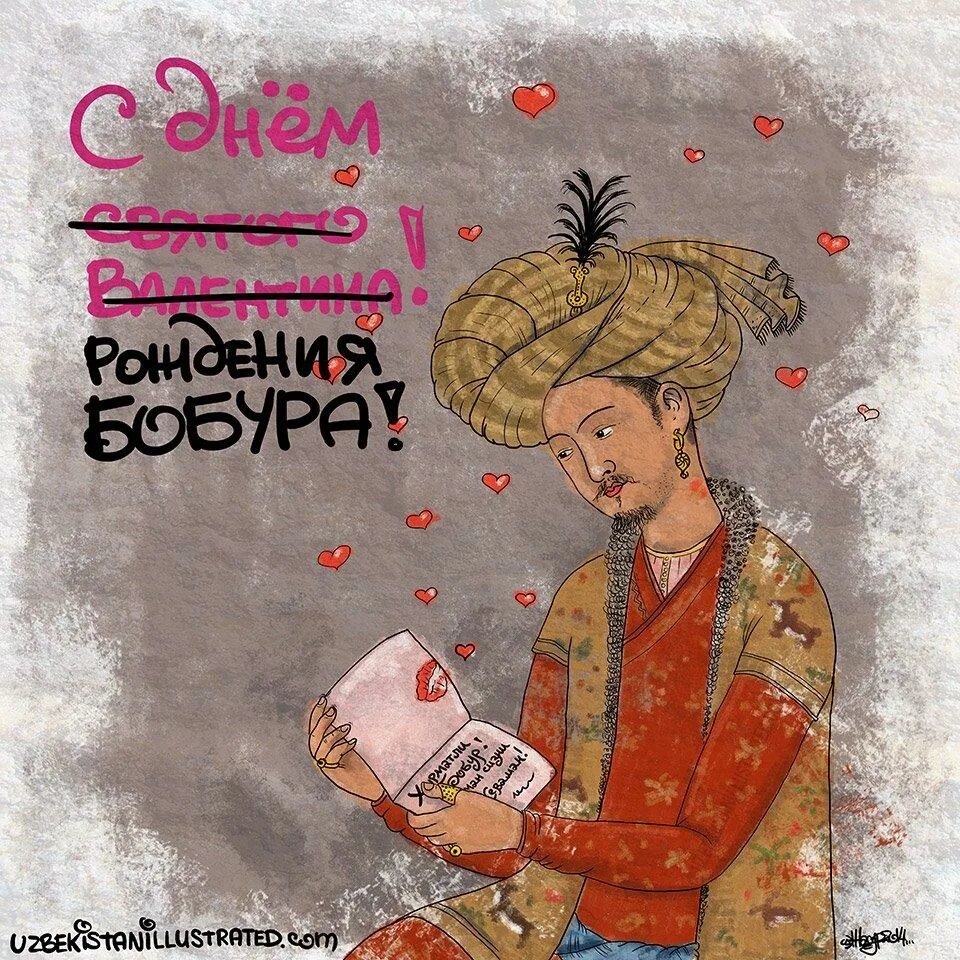 С днём
святого
Валентина!
рождения
БОБУРА!
Хурматли
Бобур!
ман сизни
севаман!
UZBEKISTANILLUSTRATED.COM